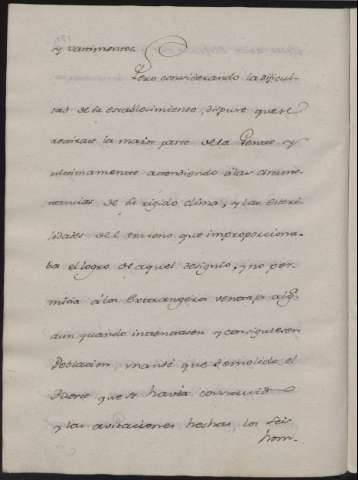 y vastimentos.
Pero considerando la dificul-
tad de este establecimiento, dispuse que se
retirase la maior parte de la Gente y
ultimamente atendiendo á las circuns-
tancias de su rigido clima, y las esteri-
lidades del terreno que improporciona-
ba el logro de aquel designio, y no per-
mitia á los Extrangeros ventaja alg.ª
aun quando intentasen y consiguiesen
Poblacion, mandé que demolido el
Fuerte que se havia construido
y las avitaciones hechas, los seis
hom-